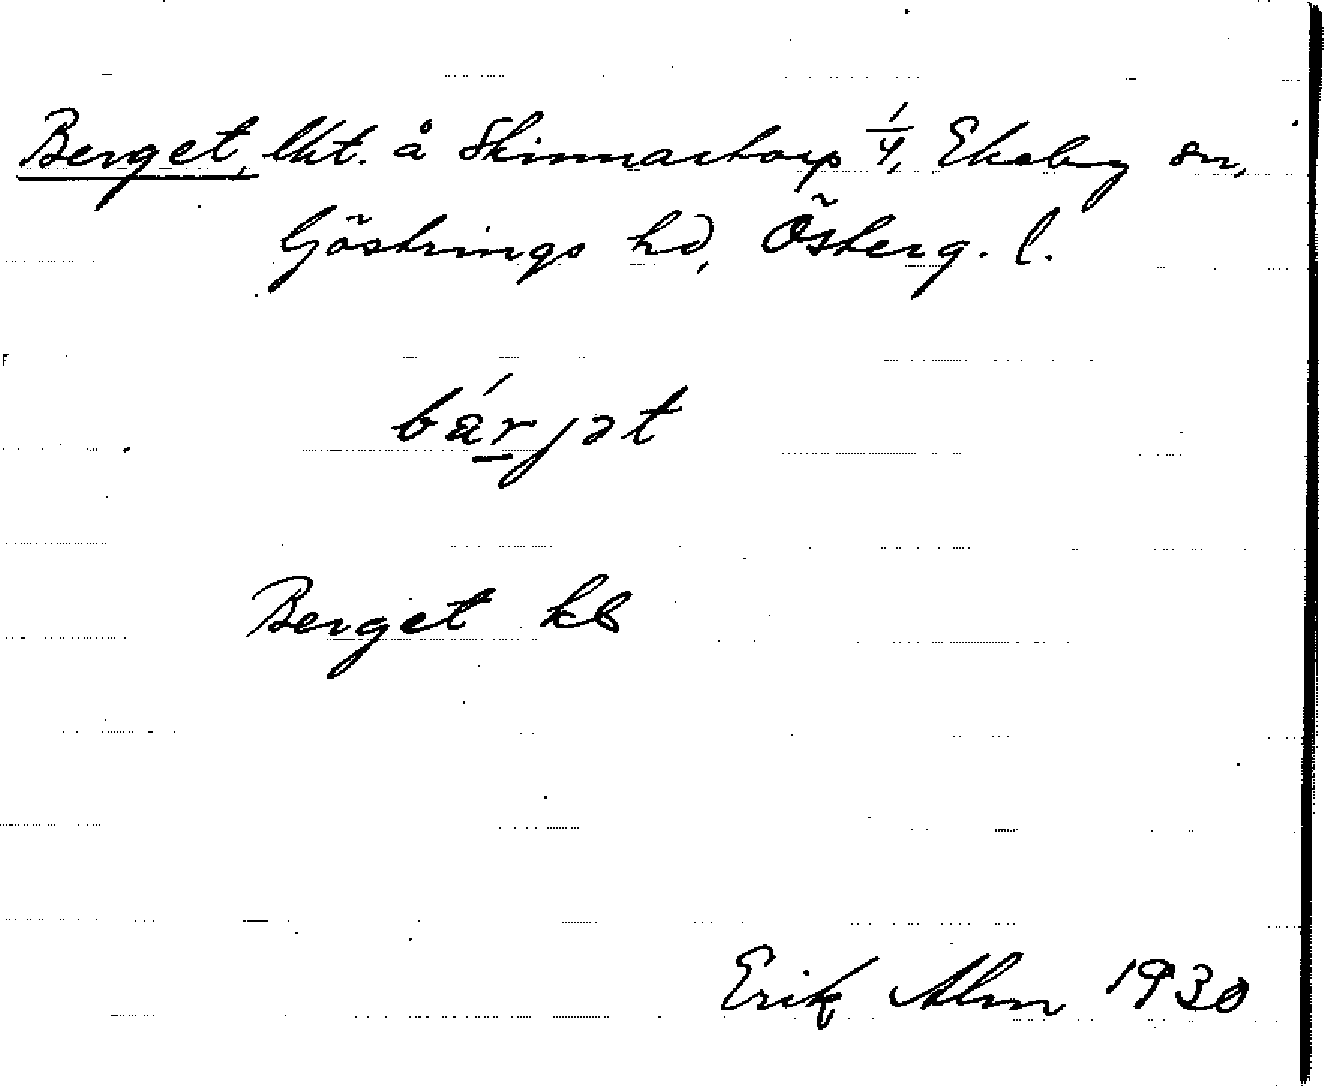 Berget, lht. å Skinnartorp 1/4, Ekeby sn,
Göstrings hd, Österg. l.
bárjət
Berget kb
Erik Alm 1930